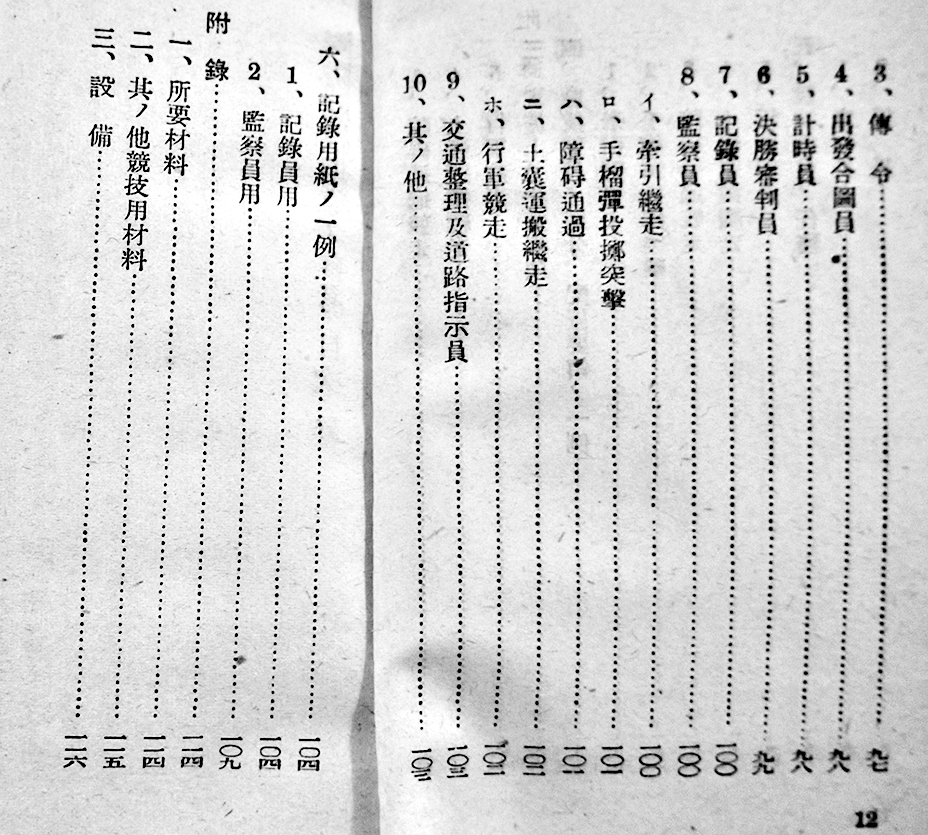 3、傳令……九七
4、出發合圖員……九八
5、計時員……九八
6、決勝審判員……九九
7、記錄員……一〇〇
8、監察員……一〇〇
イ、牽引繼走……一〇〇
ロ、手榴彈投擲突擊……一〇一
ハ、障碍通過……一〇一
ニ、土嚢運搬繼走……一〇二
ホ、行軍競走……一〇二
9、交通整理及道路指示員……一〇三
10、其ノ他……一〇三
12
六、記錄用紙ノ一例……一〇四
1、記錄員用……一〇四
2、監察員用……一〇九
附錄……一一四
一、所要材料……一一四
二、其ノ他競技用材料……一一五
三、設備……一一六